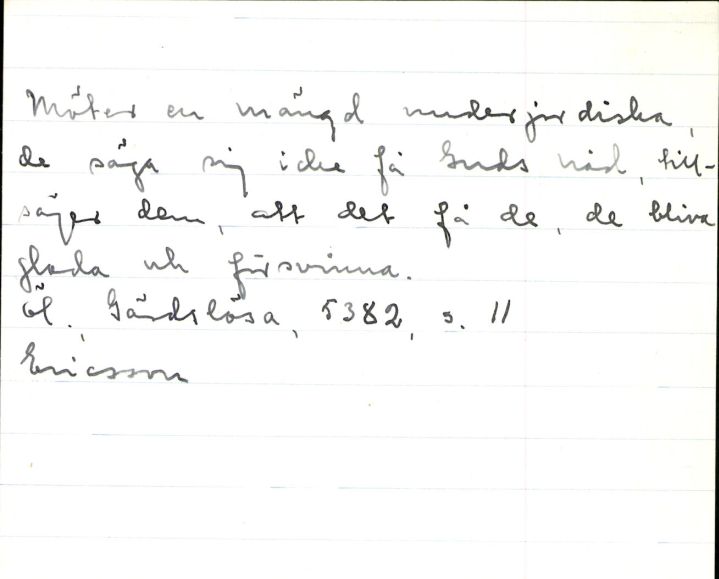 Möter en mängd underjordiska,
de säga sig icke få Guds nåd, till-
säger dem, att det få de, de bliva
glada och försvinna.
Öl., Gärdslösa, 5382, s. 11
Ericsson